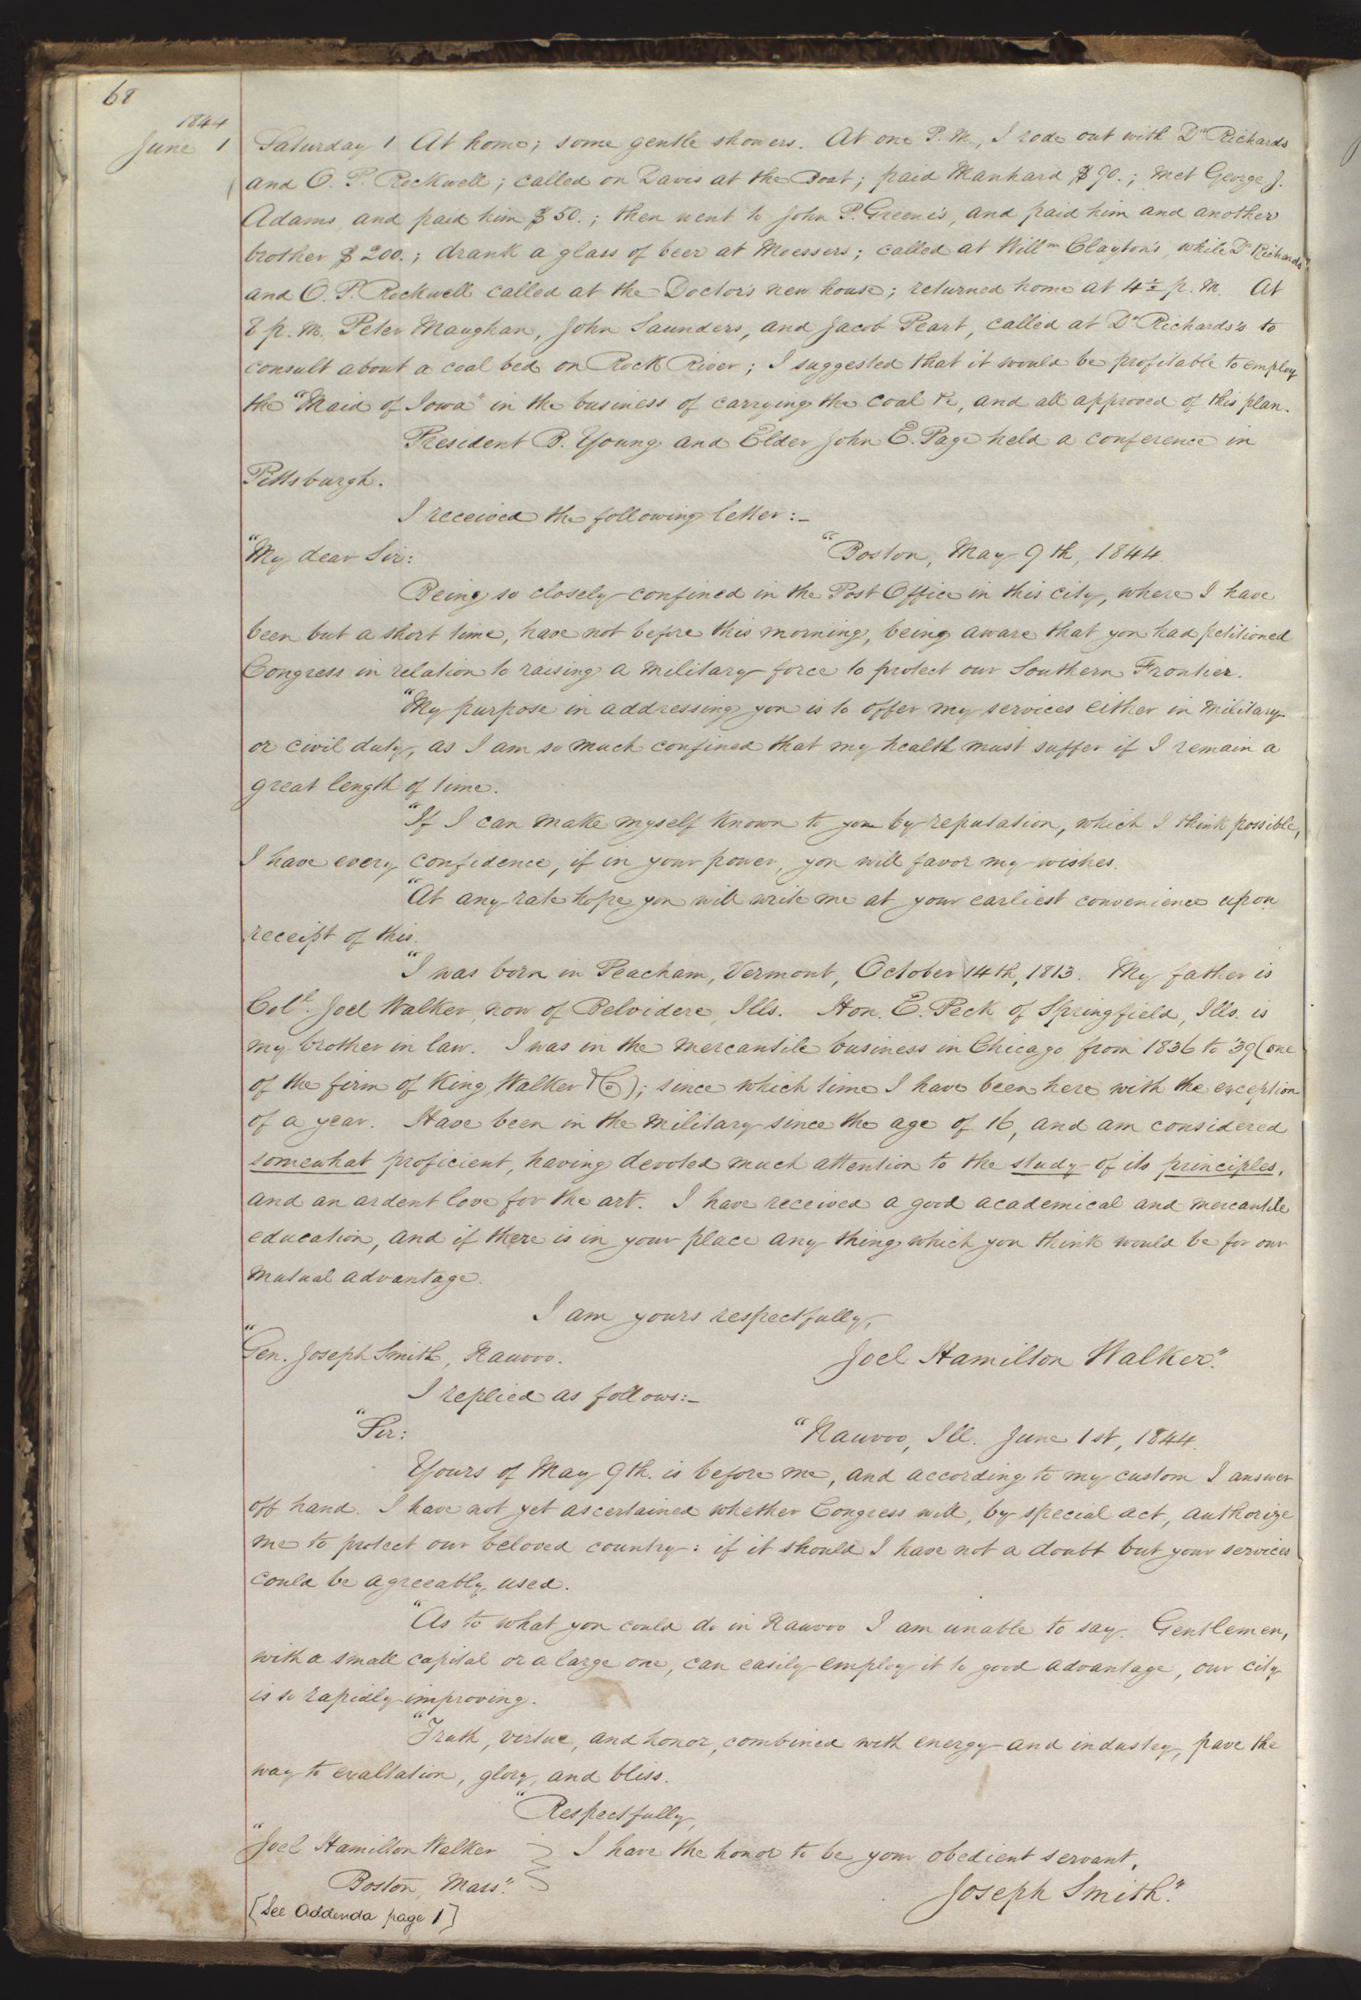 68
1844
June 1
Saturday 1 At home; some gentle showers. At one P. M., I rode out with Dr Richards
and O. P. Rockwell; called on Davis at the Boat; paid Manhard $90.; met George J.
Adams, and paid him $50.; then went to John P. Greene's, and paid him and another
brother $200.; drank a glass of beer at Moessers; called at Willm Clayton's, while Dr Richards
and O. P. Rockwell called at the Doctor's new house; returned home at 4½ p. m. At
8 p. m. Peter Maughan, John Saunders, and Jacob Peart, called at Dr Richards's to
consult about a coal bed on Rock River; I suggested that it would be profitable to employ
the "Maid of Iowa" in the business of carrying the coal &c, and all approved of this plan.
President B. Young and Elder John E. Page held a conference in
Pittsburgh.
I received the following letter:—
"My dear Sir: "Boston, May 9th, 1844.
Being so closely confined in the Post Office in this city, where I have
been but a short time, have not before this morning, being aware that you had petitioned
Congress in relation to raising a military force to protect our Southern Frontier.
"My purpose in addressing you is to offer my services either in military
or civil duty, as I am so much confined that my health must suffer if I remain a
great length of time.
"If I can make myself known to you by reputation, which I think possible,
I have every confidence, if in your power, you will favor my wishes.
"At any rate hope you will write me at your earliest convenience upon
receipt of this.
"I was born in Peacham, Vermont, October 14th, 1813. My father is
Col. Joel Walker, now of Belvidere, Ills. Hon. E. Peck of Springfield, Ills. is
my brother in law. I was in the mercantile business in Chicago from 1836 to '39 (one
of the firm of King, Walker & Co); since which time I have been here with the exception
of a year. Have been in the military since the age of 16, and am considered
somewhat proficient, having devoted much attention to the study of its principles,
and an ardent love for the art. I have received a good academical and mercantile
education, and if there is in your place any thing which you think would be for our
mutual advantage.
I am yours respectfully,
"Gen. Joseph Smith, Nauvoo. Joel Hamilton Walker."
I replied as follows:—
"Sir: "Nauvoo, Ill. June 1st, 1844.
Yours of May 9th. is before me, and according to my custom I answer
off hand. I have not yet ascertained whether Congress will, by special act, authorize
me to protect our beloved country: if it should I have not a doubt but your services
could be agreeably used.
"As to what you could do in Nauvoo I am unable to say. Gentlemen,
with a small capital or a large one, can easily employ it to good advantage, our city
is so rapidly improving.
"Truth, virtue, and honor, combined with energy and industry, pave the
way to exaltation, glory, and bliss.
"Respectfully,
"Joel Hamilton Walker } I have the honor to be your obedient servant,
Boston, Mass." Joseph Smith."
[See Addenda page 1]